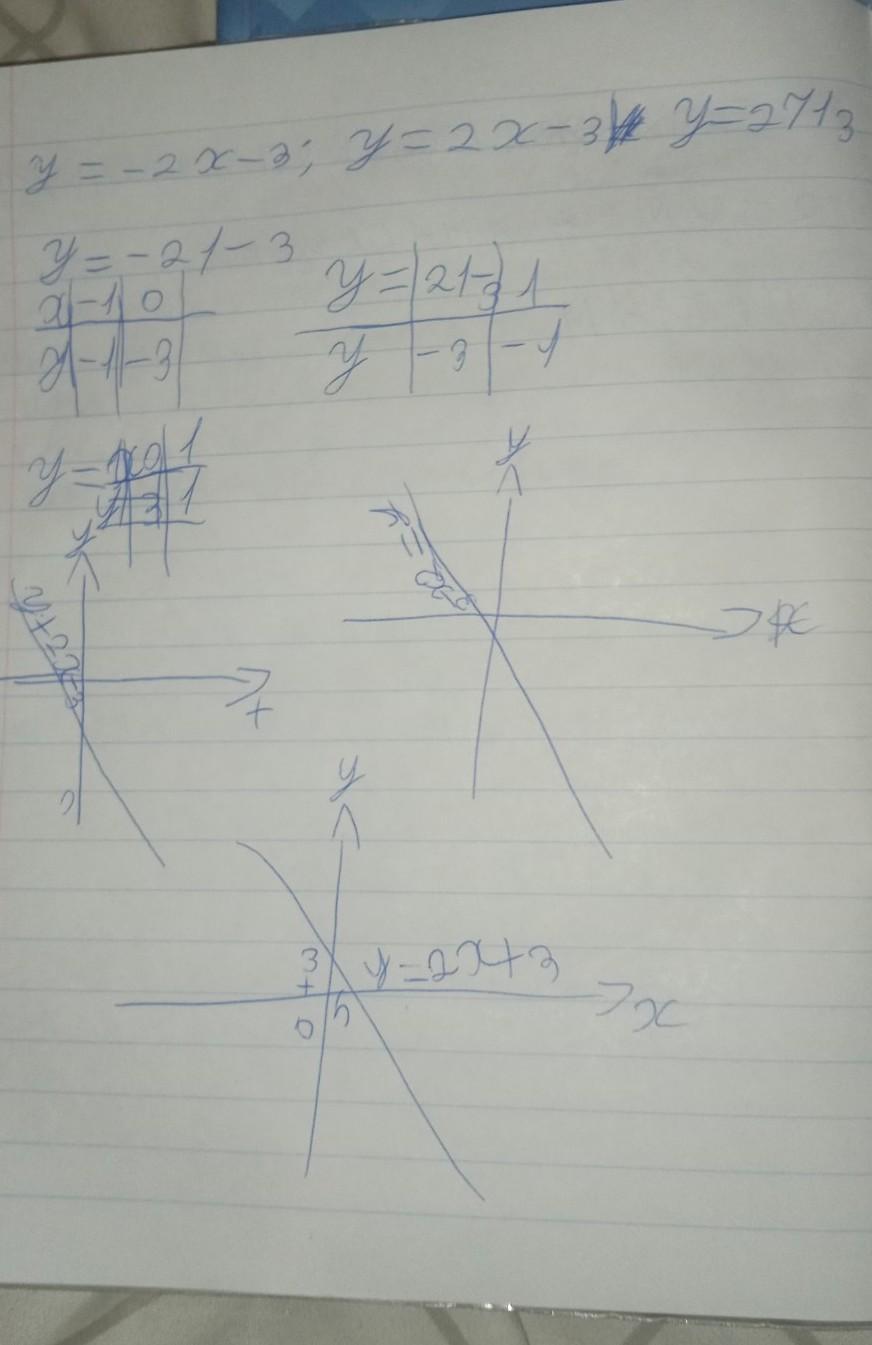 y = -2x-3; y = 2x-3 y=2713
y=-21-3
x -1 0
y -1 -3
y= 21-3 1
y -3 -1
y= x 0 1
y 3 1
y
y
x
y
3 y=2x+3
x
0